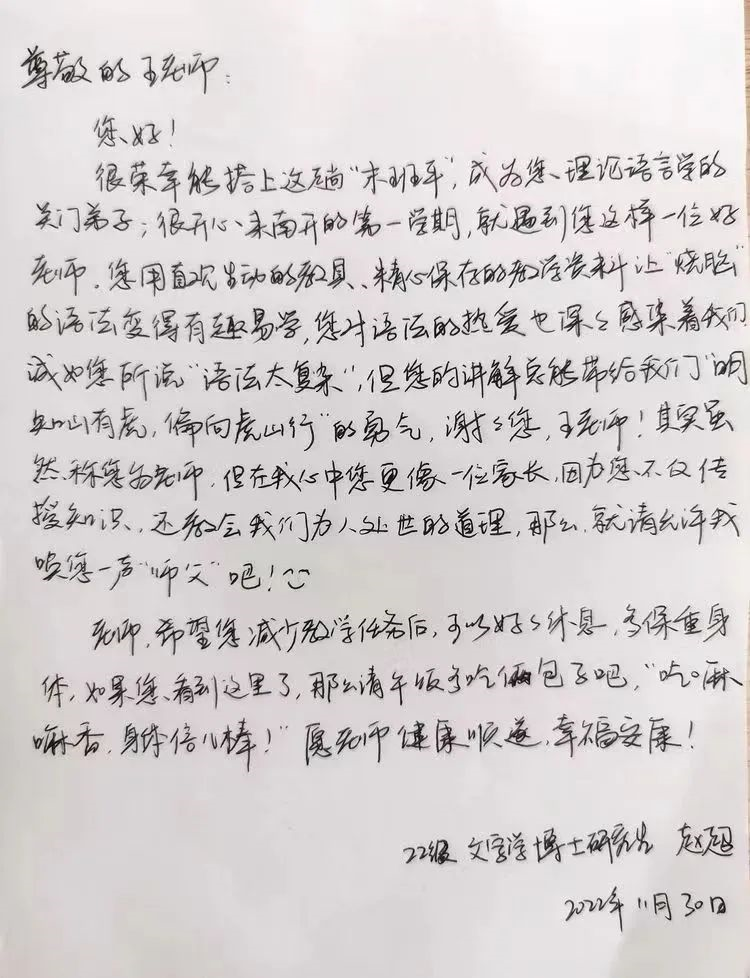 尊敬的王老师：
您好！
很荣幸能搭上这趟“末班车”，成为您理论语言学的
关门弟子；很开心来南开的第一学期，就遇到您这样一位好
老师。您用直观生动的教具、精心保存的教学资料让“烧脑”
的语法变得有趣易学，您对语法的热爱也深々感染着我们
诚如您所说“语法太复杂”，但您的讲解总能带给我们“明
知山有虎，偏向虎山行”的勇气，谢々您，王老师！其实虽
然称您为老师，但在我心中您更像一位家长，因为您不仅传
授知识，还教会我们为人处世的道理，那么，就请允许我
唤您一声“师父”吧！
老师，希望您减少教学任务后，可以好々休息，多保重身
体，如果您看到这里了，那么请午饭多吃俩包子吧，“吃嘛
嘛香，身体倍儿棒！”愿老师健康顺遂，幸福安康！
22级 文字学博士研究生 赵
2022年11月30日